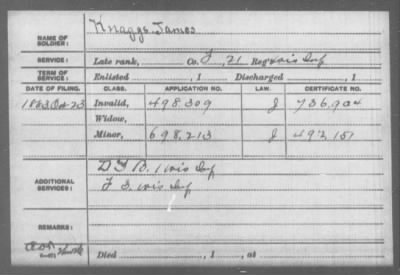 NAME OF SOLDIER: Knaggs, James
SERVICE: Late rank, Co. I, 21 Reg't Wis Inf
TERM OF SERVICE: Enlisted , 1 Discharged , 1
DATE OF FILING. CLASS. APPLICATION NO. LAW. CERTIFICATE NO.
1883 Oct 23 Invalid, 498,309 J 736,904
Widow,
Minor, 698,213 J 492,151
ADDITIONAL SERVICES: D & B. 1 Wis Inf
F 3. Wis Inf
REMARKS:
Died , 1 , at